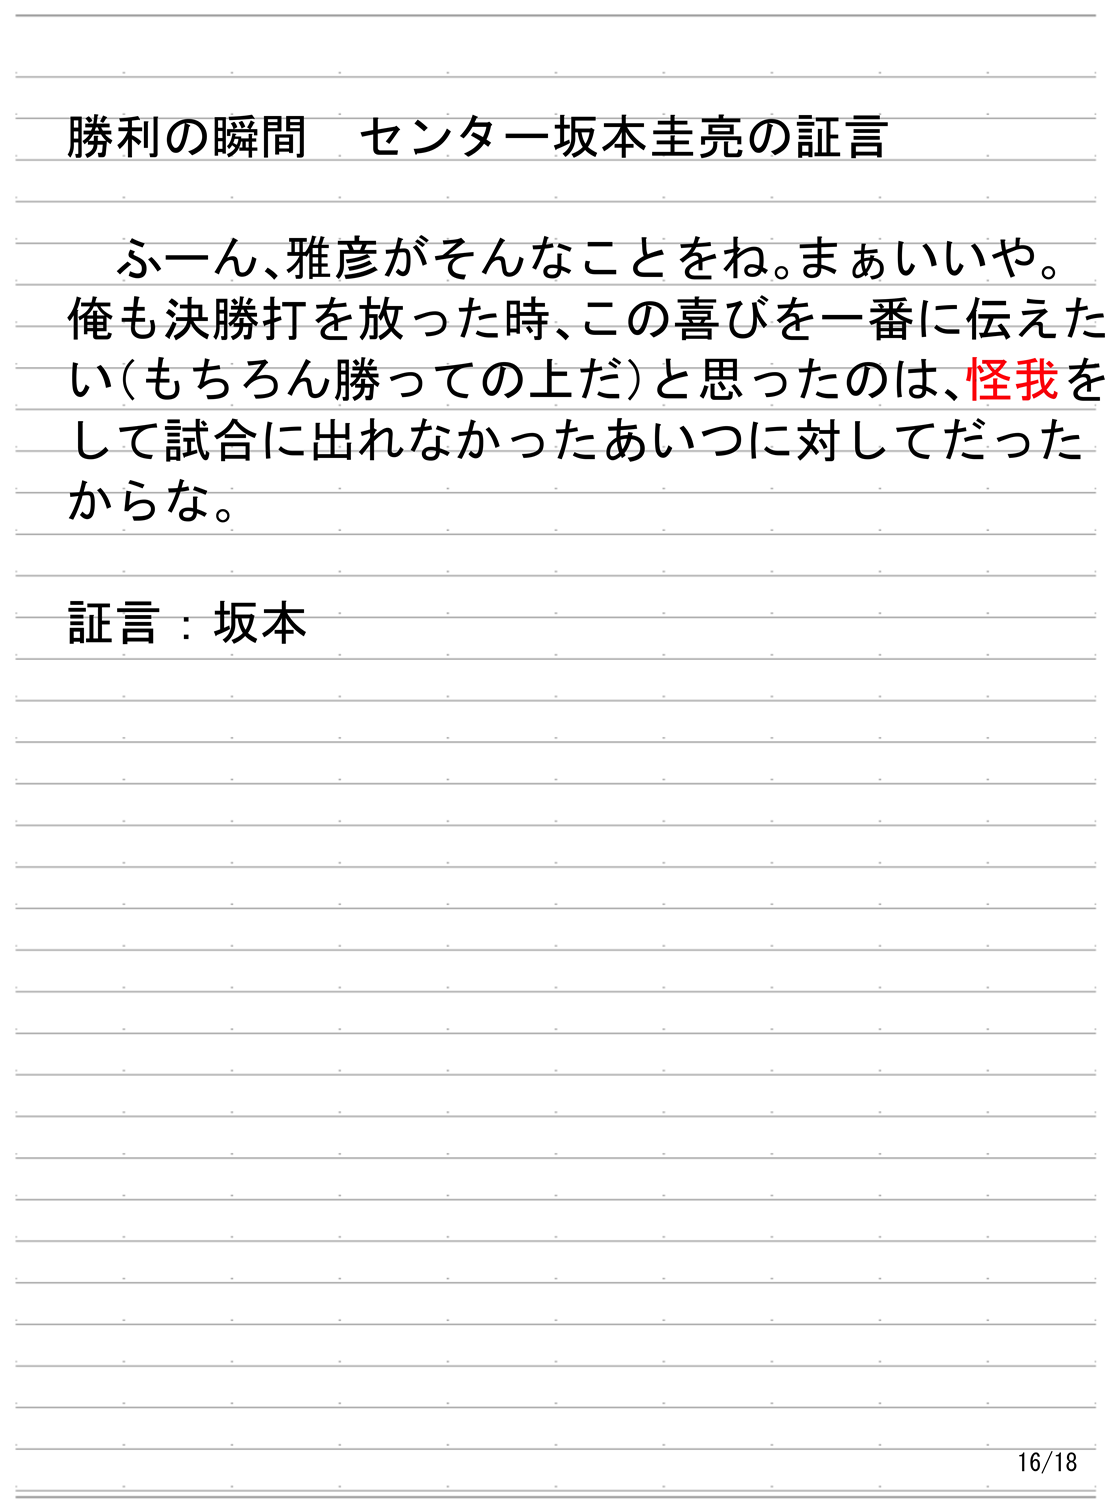 勝利の瞬間　センター坂本圭亮の証言
　ふーん、雅彦がそんなことをね。まぁいいや。
俺も決勝打を放った時、この喜びを一番に伝えた
い（もちろん勝っての上だ）と思ったのは、怪我を
して試合に出れなかったあいつに対してだった
からな。
証言：坂本
16/18